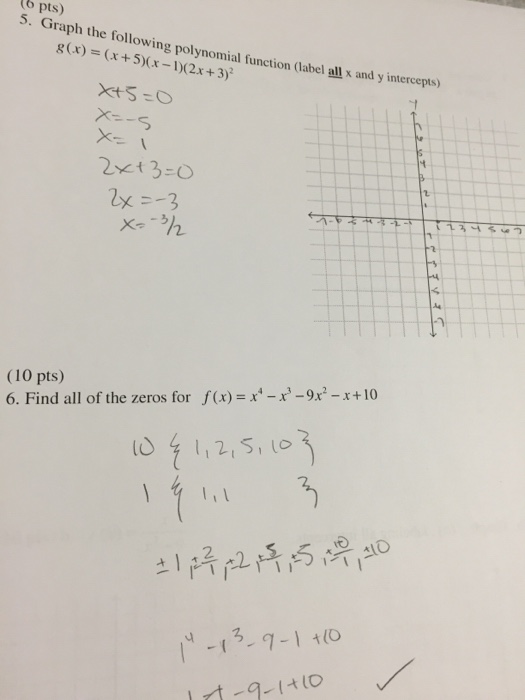 (6 pts)
5. Graph the following polynomial function (label all x and y intercepts)
g(x) = (x+5)(x−1)(2x+3)²
x+5=0
x=-5
x= 1
2x+3=0
2x=-3
x=-3/2
(10 pts)
6. Find all of the zeros for f(x) = x⁴ − x³ − 9x² − x + 10
10 { 1, 2, 5, 10 }
1 { 1, 1 }
±1, ±2/1, ±2, ±5/1, ±5, ±10/1, ±10
1⁴ -1³ -9-1 +10
-9-1+10 ✓